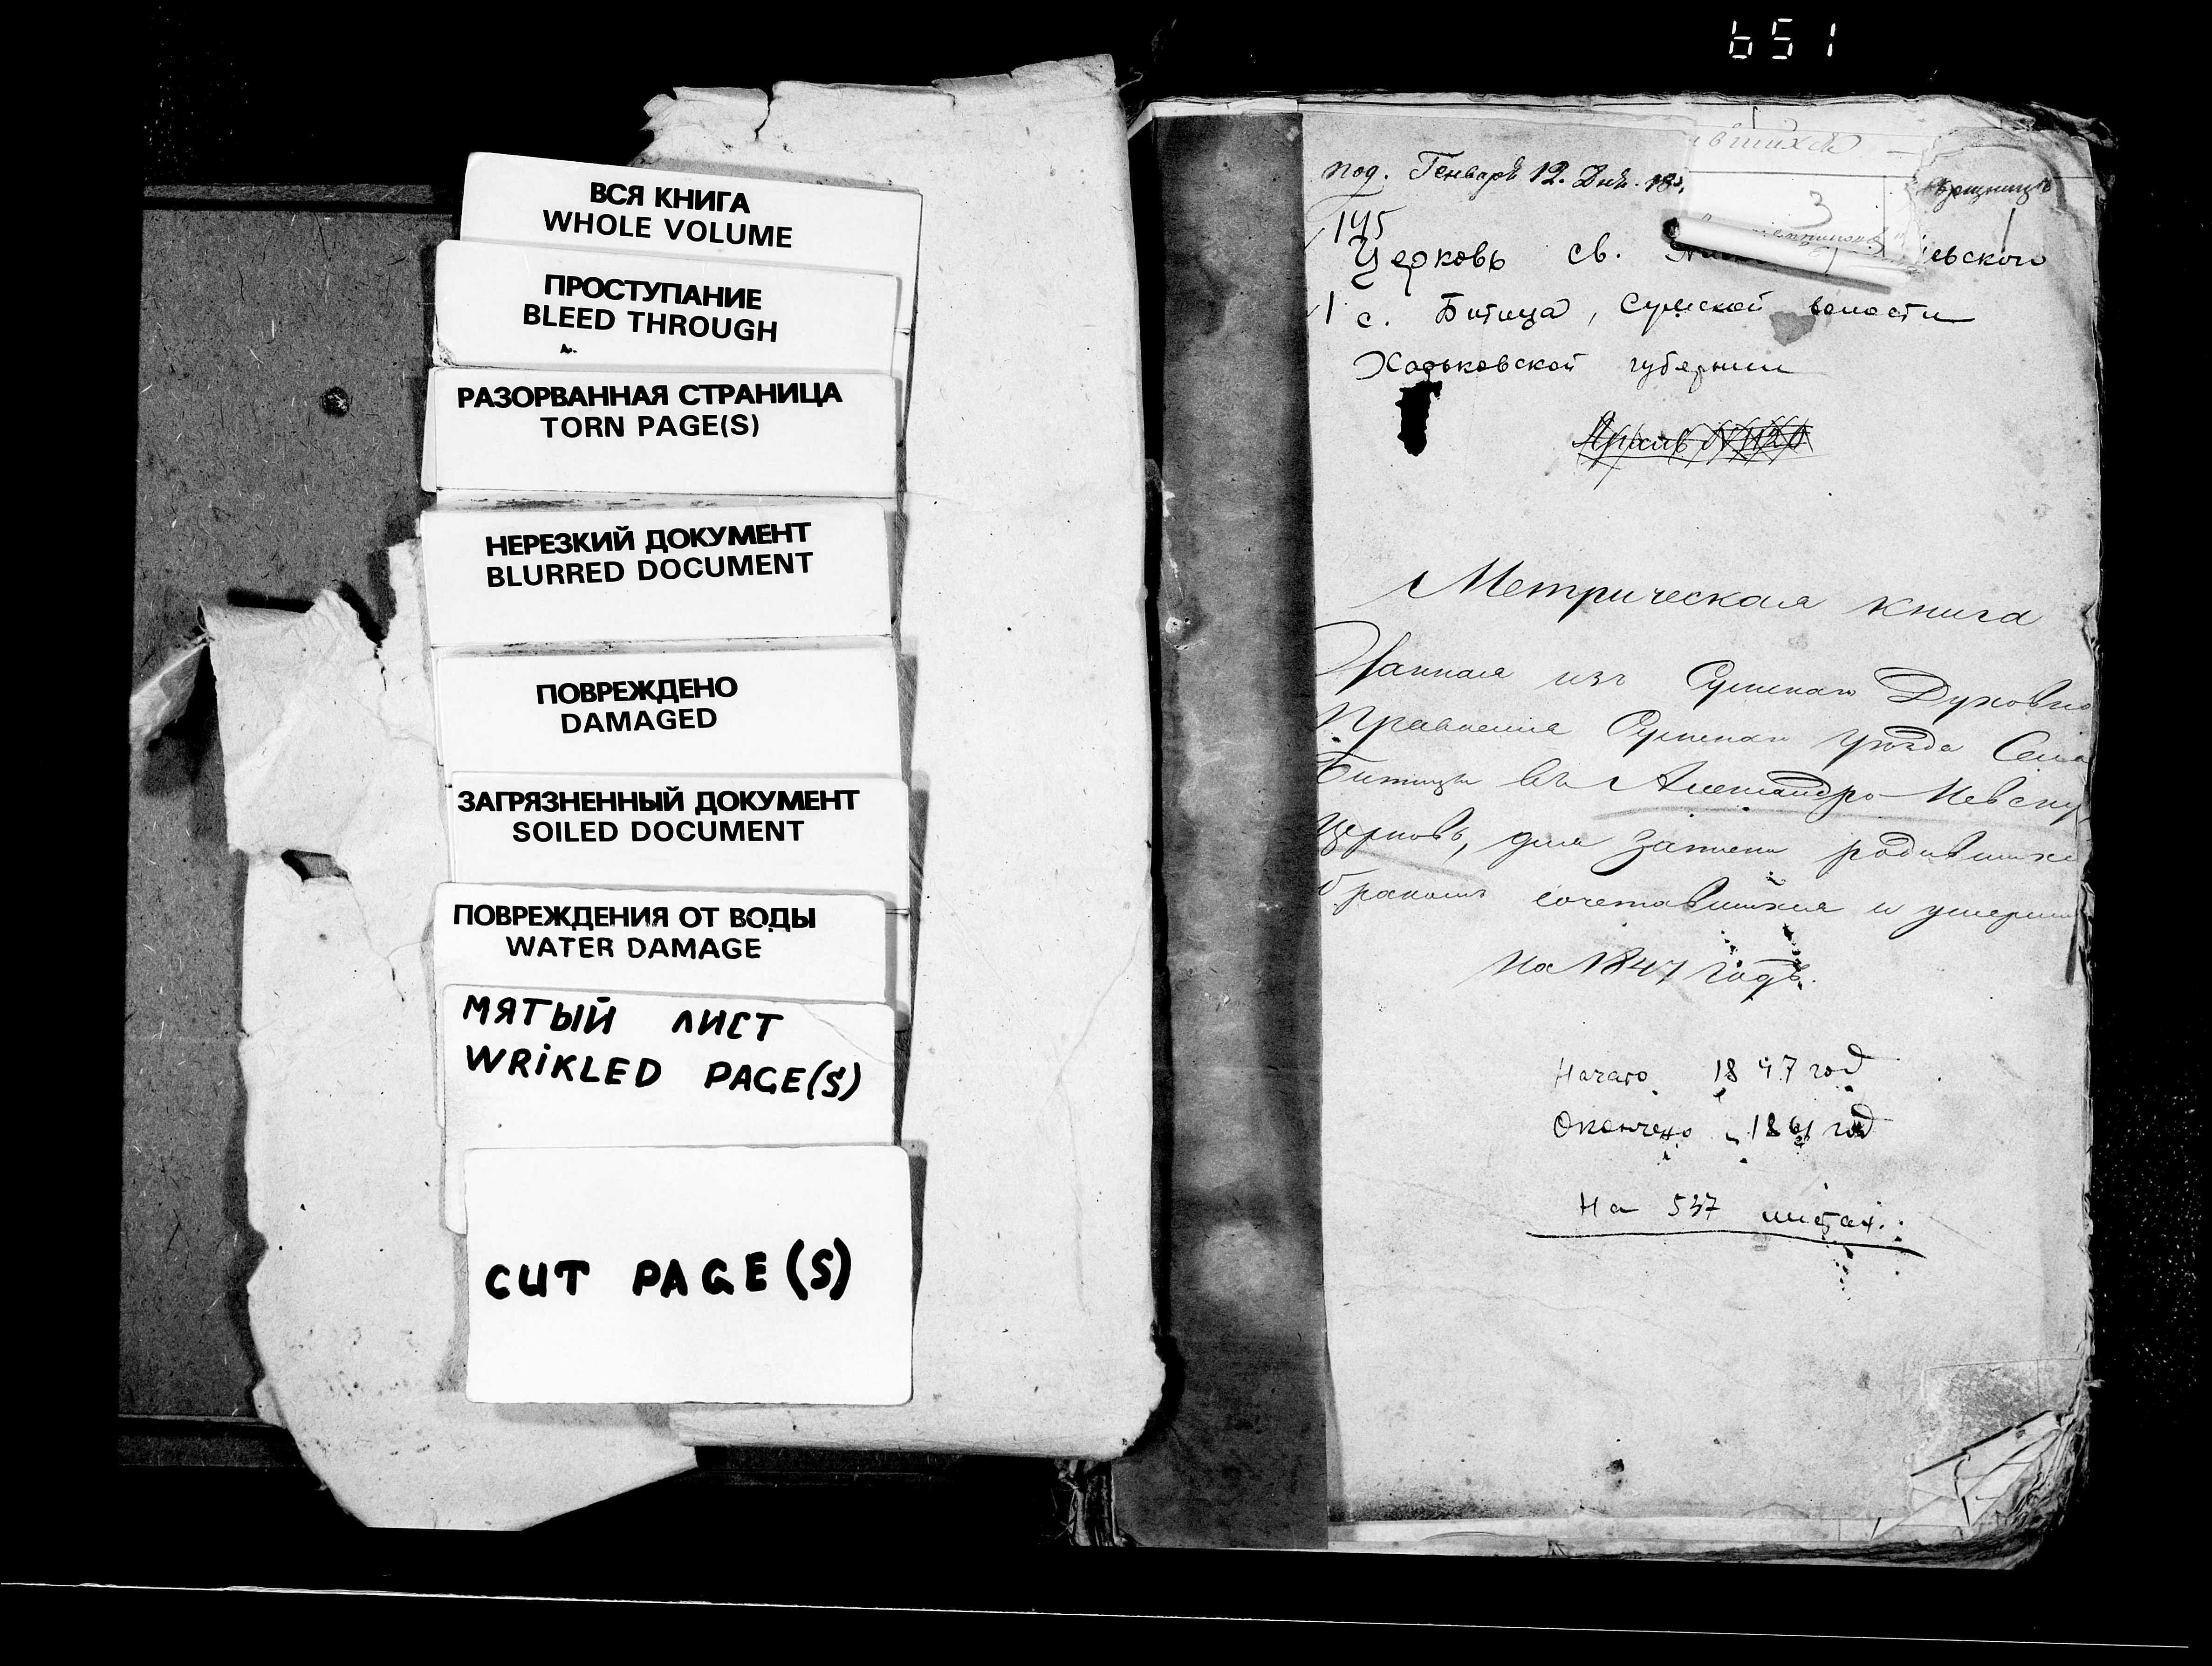 651
ВСЯ КНИГА
WHOLE VOLUME
ПРОСТУПАНИЕ
BLEED THROUGH
РАЗОРВАННАЯ СТРАНИЦА
TORN PAGE(S)
НЕРЕЗКИЙ ДОКУМЕНТ
BLURRED DOCUMENT
ПОВРЕЖДЕНО
DAMAGED
ЗАГРЯЗНЕННЫЙ ДОКУМЕНТ
SOILED DOCUMENT
ПОВРЕЖДЕНИЯ ОТ ВОДЫ
WATER DAMAGE
МЯТЫЙ ЛИСТ
WRIKLED PAGE(S)
CUT PAGE(S)
вшихся
под. Генваря 12. Дня.
3
145
Церковь св.
1 с. Битица, Сумской волости
Харьковской губернии
Метрическая книга
Данная изъ Сумскаго Духовно
Правления Сумскаго уѣзда Села
Битицы въ Александро-Невску
Церковь, для записи родившихс
бракомъ сочетавшихся и умерши
На 1847 годъ.
Начато 1847 год
Окончено 1861 год
На 537 листах.